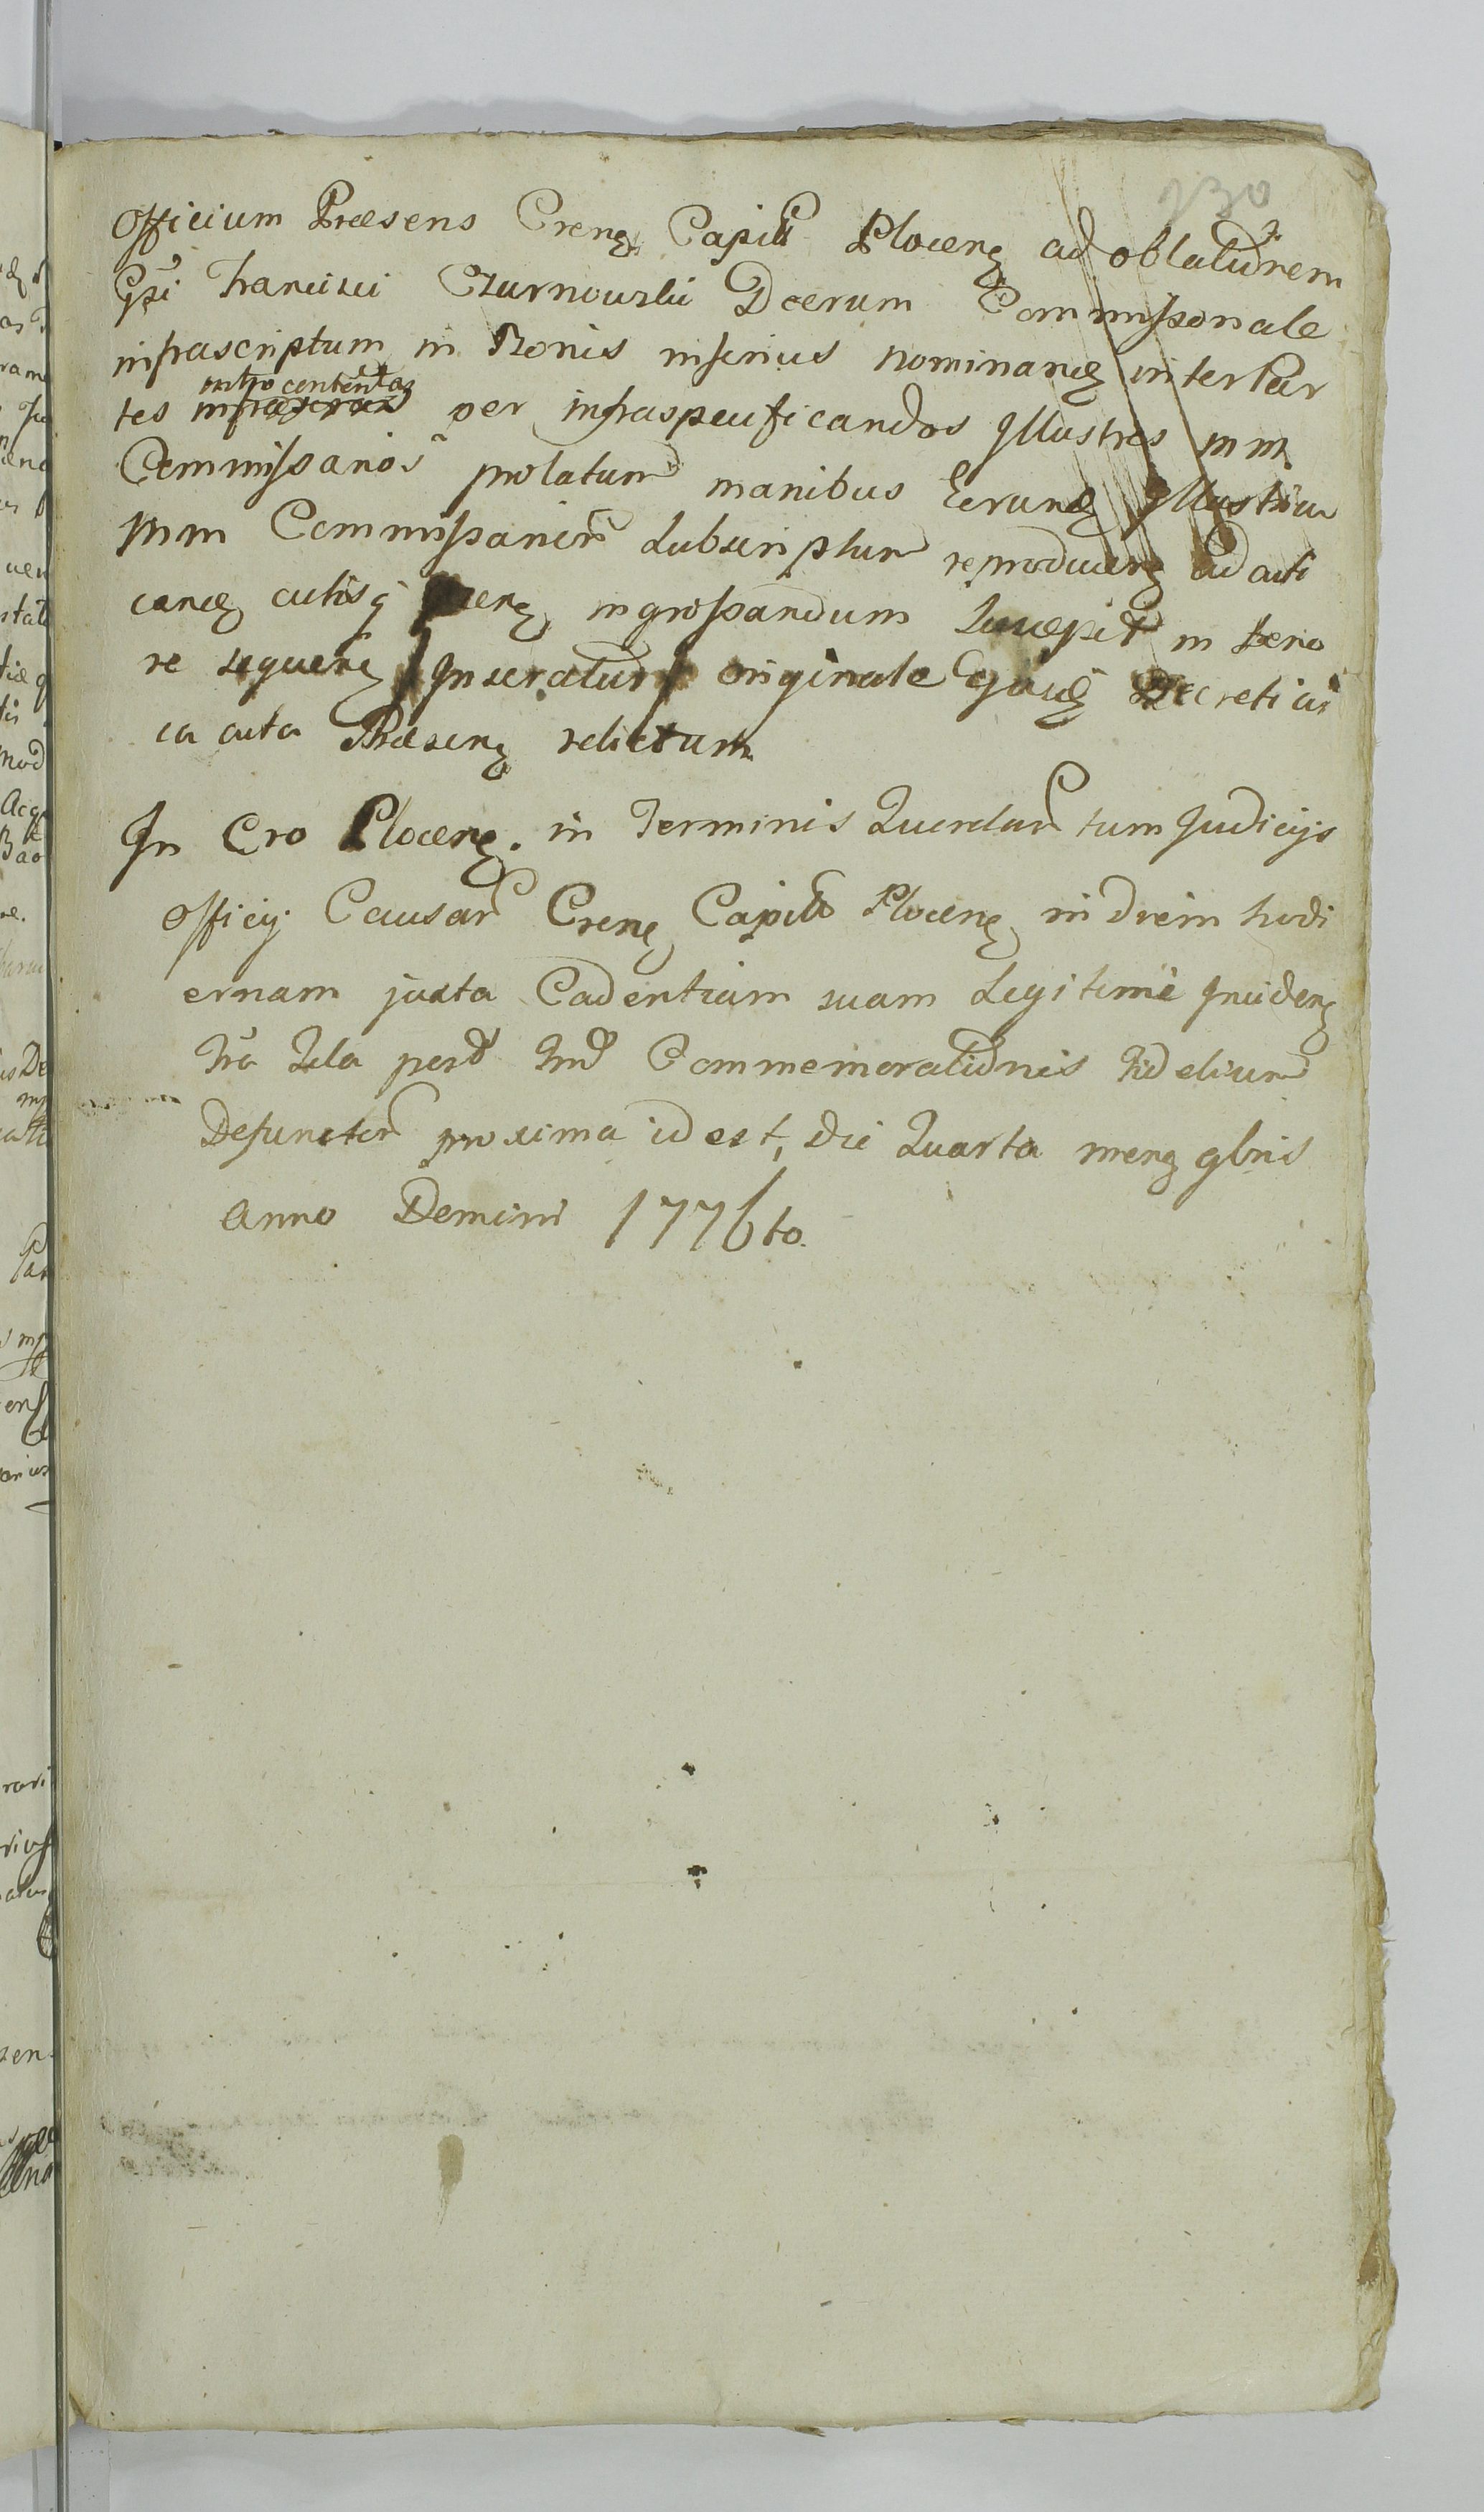 230
Officium Præsens Crenę Capitł Plocenę ad oblatãonem
Gsi Francisci Czarnowski Dcerum Commissionale
infrascriptum in Bonis inferius nominandę inter Par
intro contentas
tes per infraspecificandos Jllustres MM
Commissarios prolatum manibus Eorundę Jllustrium
MM Commissarior subscriptum reproducenę ad acti
candę actisq ingrossandum Suscepit in teno
re sequenę Inseratur originale Ejusdę Decreti cir
ca acta Præsenę relictum
In Cro Plocenę. in Terminis Querelar tum Judicijs
Officij Causar Crenę Capitł Plocenę in diem hodi
ernam juxta Cadentiam suam Legitime Incidenę
Fria 2da post fm Commemorationis Fidelium
Defunctor proxima id est, die Quarta mensę 9bris
Anno Domini 1776to.